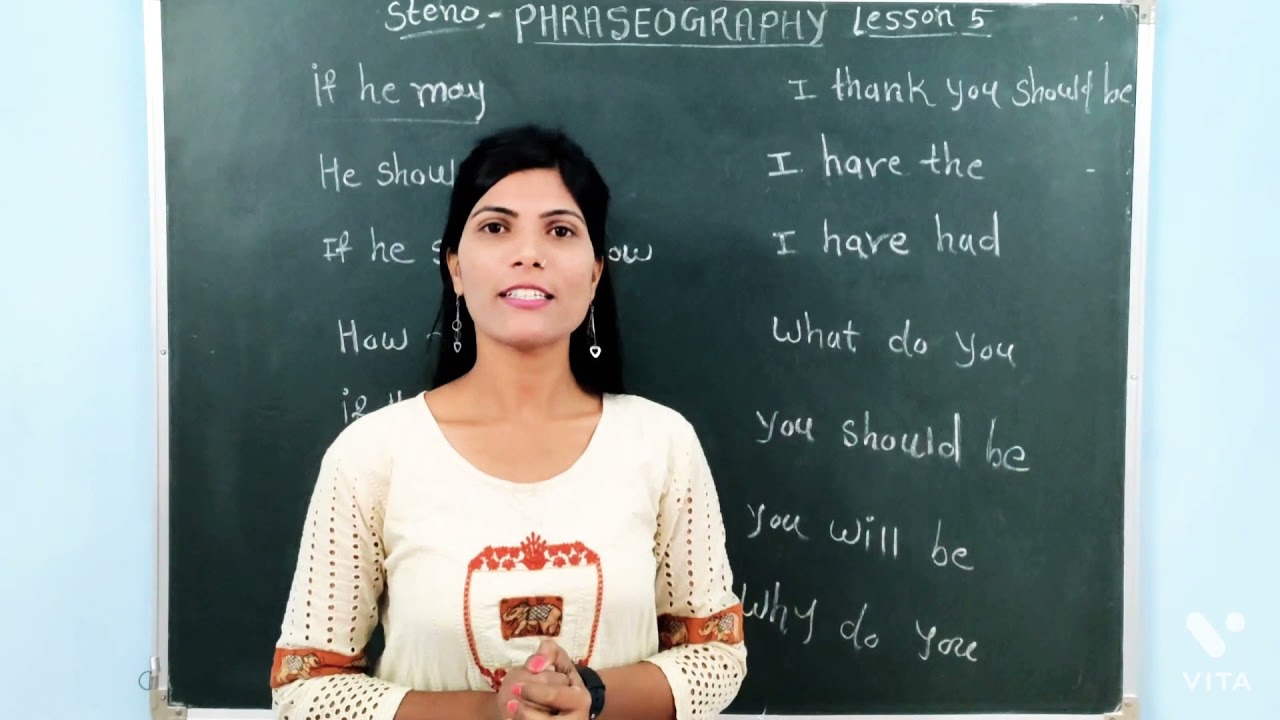 Steno - PHRASEOGRAPHY Lesson 5
if he may
He
If he
How
if
I thank you should be
I have the
I have had
What do you
you should be
you will be
Why do you
VITA